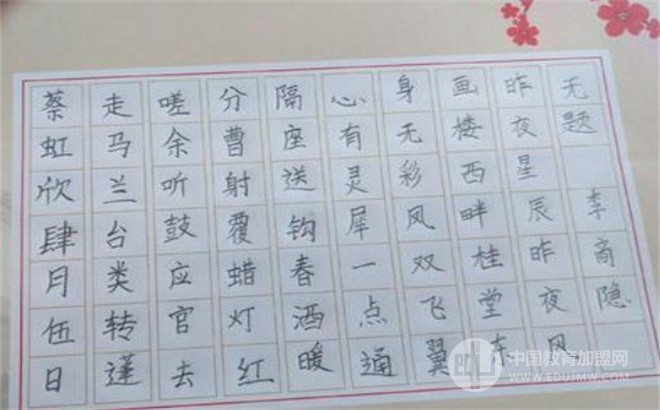 无题 李商隐
昨夜星辰昨夜风
画楼西畔桂堂东
身无彩凤双飞翼
心有灵犀一点通
隔座送钩春酒暖
分曹射覆蜡灯红
嗟余听鼓应官去
走马兰台类转蓬
蔡虹欣肆月伍日
中国教育加盟网
WWW.EDUJMW.COM